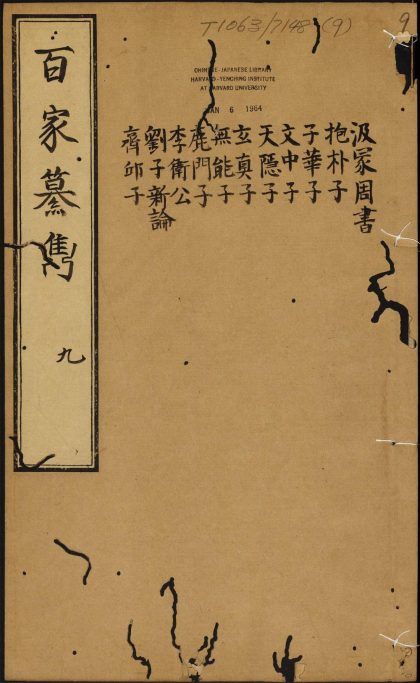 T1063/7148 (9)
9
CHINESE-JAPANESE LIBRARY
HARVARD-YENCHING INSTITUTE
AT HARVARD UNIVERSITY
JAN 6 1964
百家纂雋
九
汲冢周書
抱朴子
子華子
文中子
天隱子
玄真子
無能子
鹿門子
李衛公
劉子新論
齊邱子